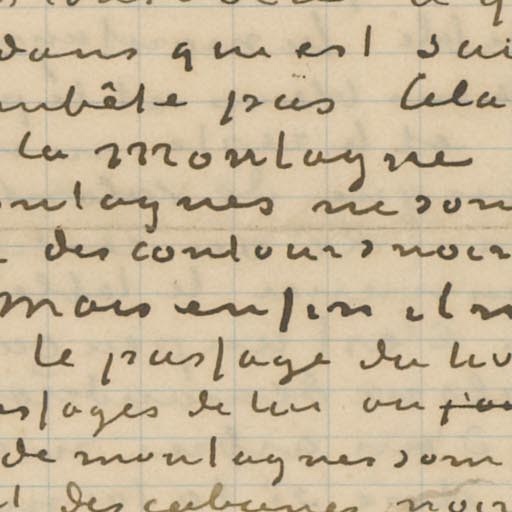 dans que est
embête pas Cela
la montagne
montagnes ne son
des contours noir
Mais enfin il n
le passage du
passages de lui ou
de montagnes som
des cabanes noir